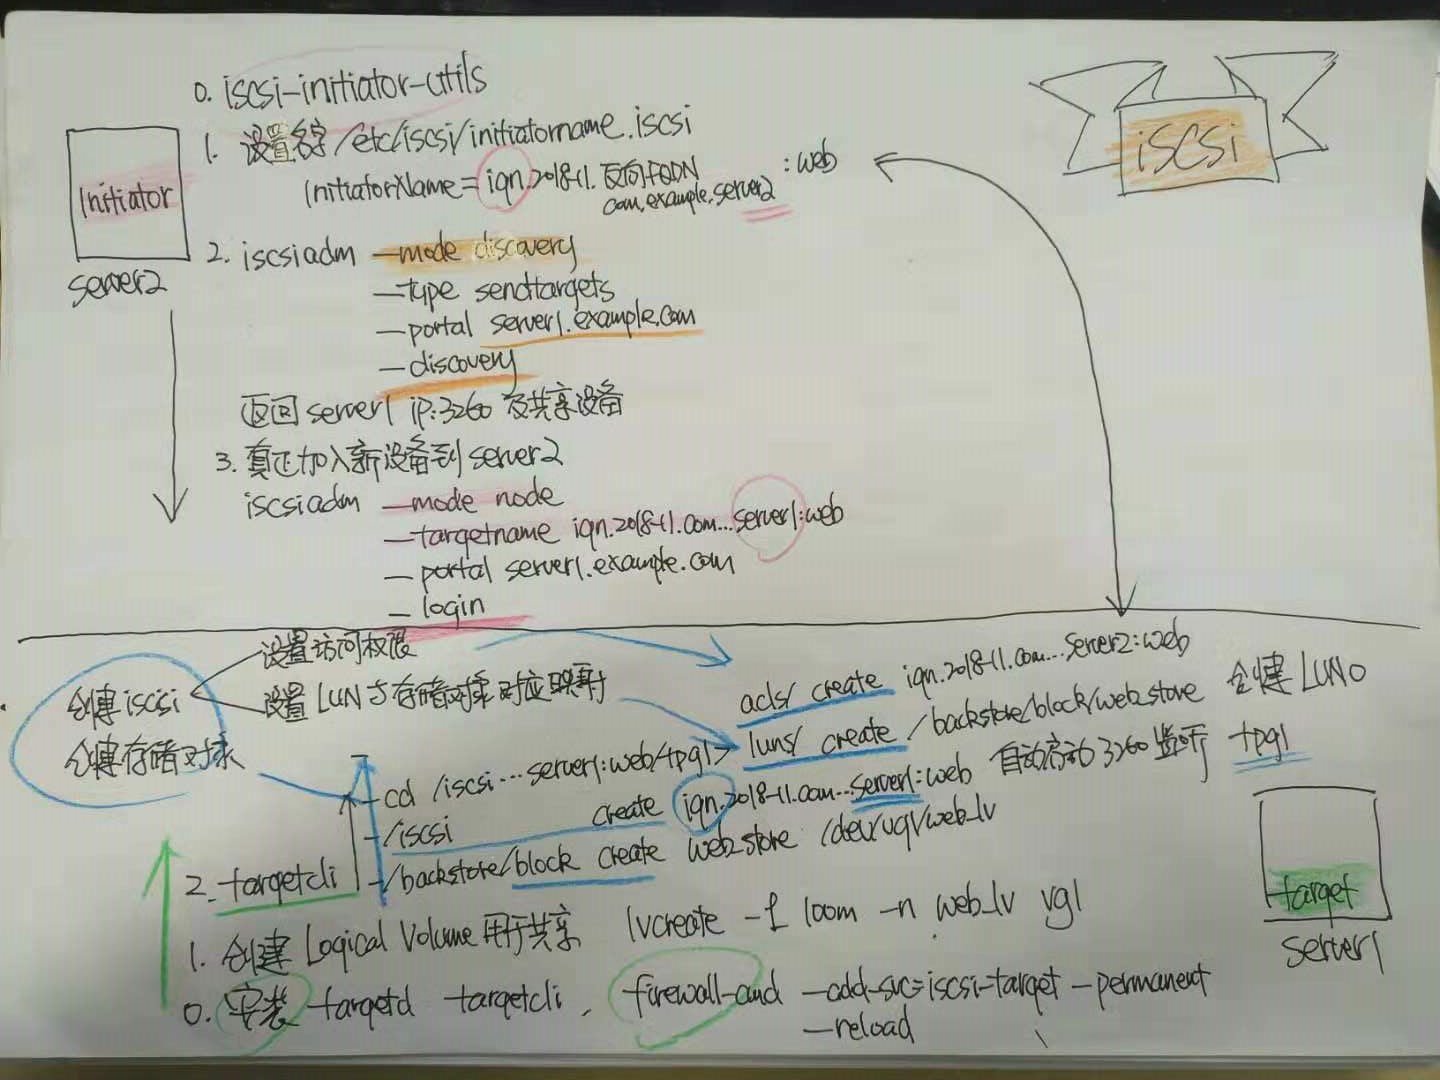 iSCSi
0. iscsi-initiator-utils
1. 设置名字 /etc/iscsi/initiatorname.iscsi
InitiatorName = iqn.2018-11.反向FQDN :web
com.example.server2
Initiator
server2
2. iscsiadm —mode discovery
—type sendtargets
—portal server1.example.com
—discovery
返回 server1 ip:3260 及共享设备
3. 真正加入新设备到 server2
iscsiadm —mode node
—targetname iqn.2018-11.com...server1:web
—portal server1.example.com
—login
设置访问权限
创建iscsi
设置 LUN与存储对象对应映射
创建存储对象
acls/ create iqn.2018-11.com...server2:web
luns/ create /backstore/block/web_store 创建LUN0
-cd /iscsi...server1:web/tpg1>
-/iscsi create iqn.2018-11.com...server1:web 自动启动3260监听 tpg1
2. targetcli -/backstore/block create web_store /dev/vg1/web_lv
1. 创建 Logical Volume 用于共享 lvcreate -L 100m -n web_lv vg1
0. 安装 targetd targetcli, firewall-cmd —add-svc=iscsi-target —permanent
—reload
target
server1